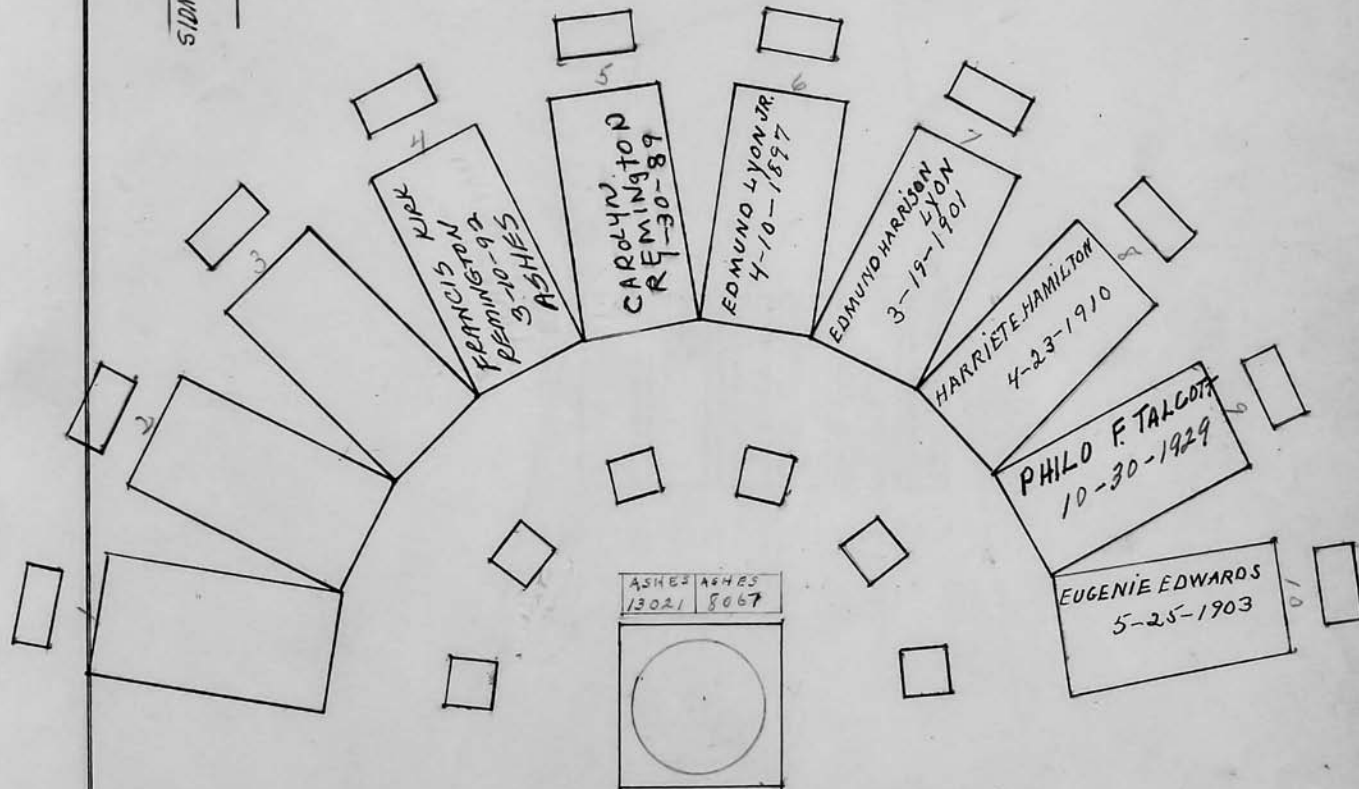 1
2
3
4
FRANCIS KIRK
REMINGTON
3-10-92
ASHES
5
CAROLYN
REMINGTON
9-30-89
6
EDMUND LYON JR.
4-10-1897
7
EDMUND HARRISON
LYON
3-19-1901
8
HARRIET E. HAMILTON
4-23-1910
9
PHILO F. TALCOTT
10-30-1929
10
EUGENIE EDWARDS
5-25-1903
ASHES ASHES
13021 8067